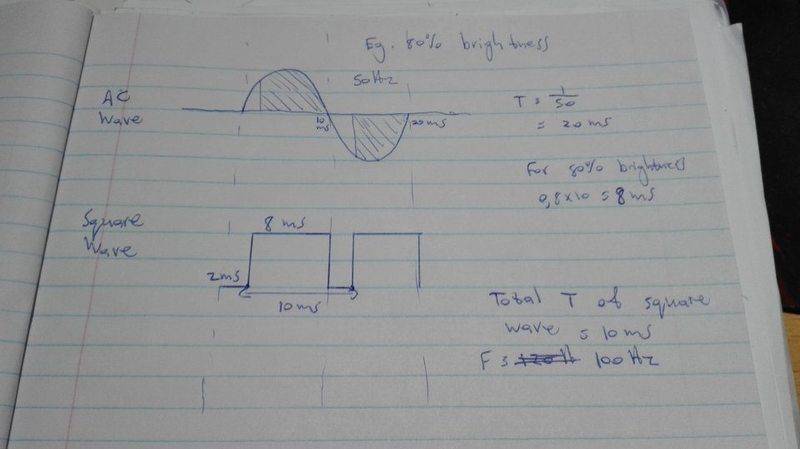 Eg. 80% brightness
50Hz
AC
Wave
10
ms
20ms
T = 1/50
= 20 ms
For 80% brightness
0,8 x 10 = 8 ms
Square
Wave
8 ms
2ms
10 ms
Total T of square
wave = 10 ms
F = 100Hz